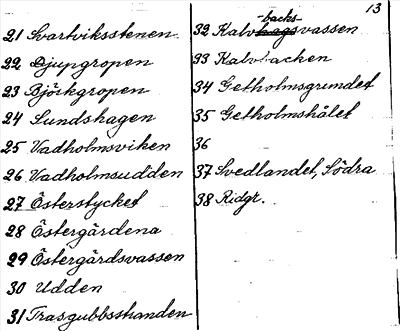 13
21 Svartviksstenen.
22 Djupgropen
23 Björkgropen
24 Sundshagen
25 Vadholmsviken
26 Vadholmsudden
27 Österstycket
28 Östergärdena
29 Östergärdsvassen
30 Udden
31 Trasgubbsstranden
-backs-
32 Kalvhagsvassen
33 Kalvbacken
34 Getholmsgrundet
35 Getholmshålet
36
37 Svedlandet, Södra
38 Ridgr.